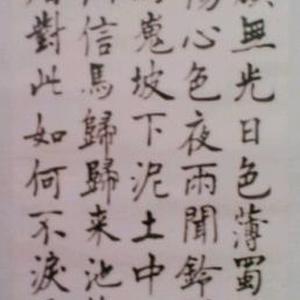 無光日色薄蜀
傷心色夜雨聞鈴
嵬坡下泥土中
信馬歸歸来池
對此如何不淚